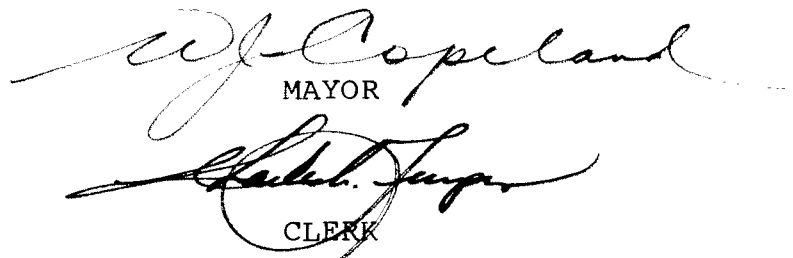 W J Copeland
MAYOR
CLERK